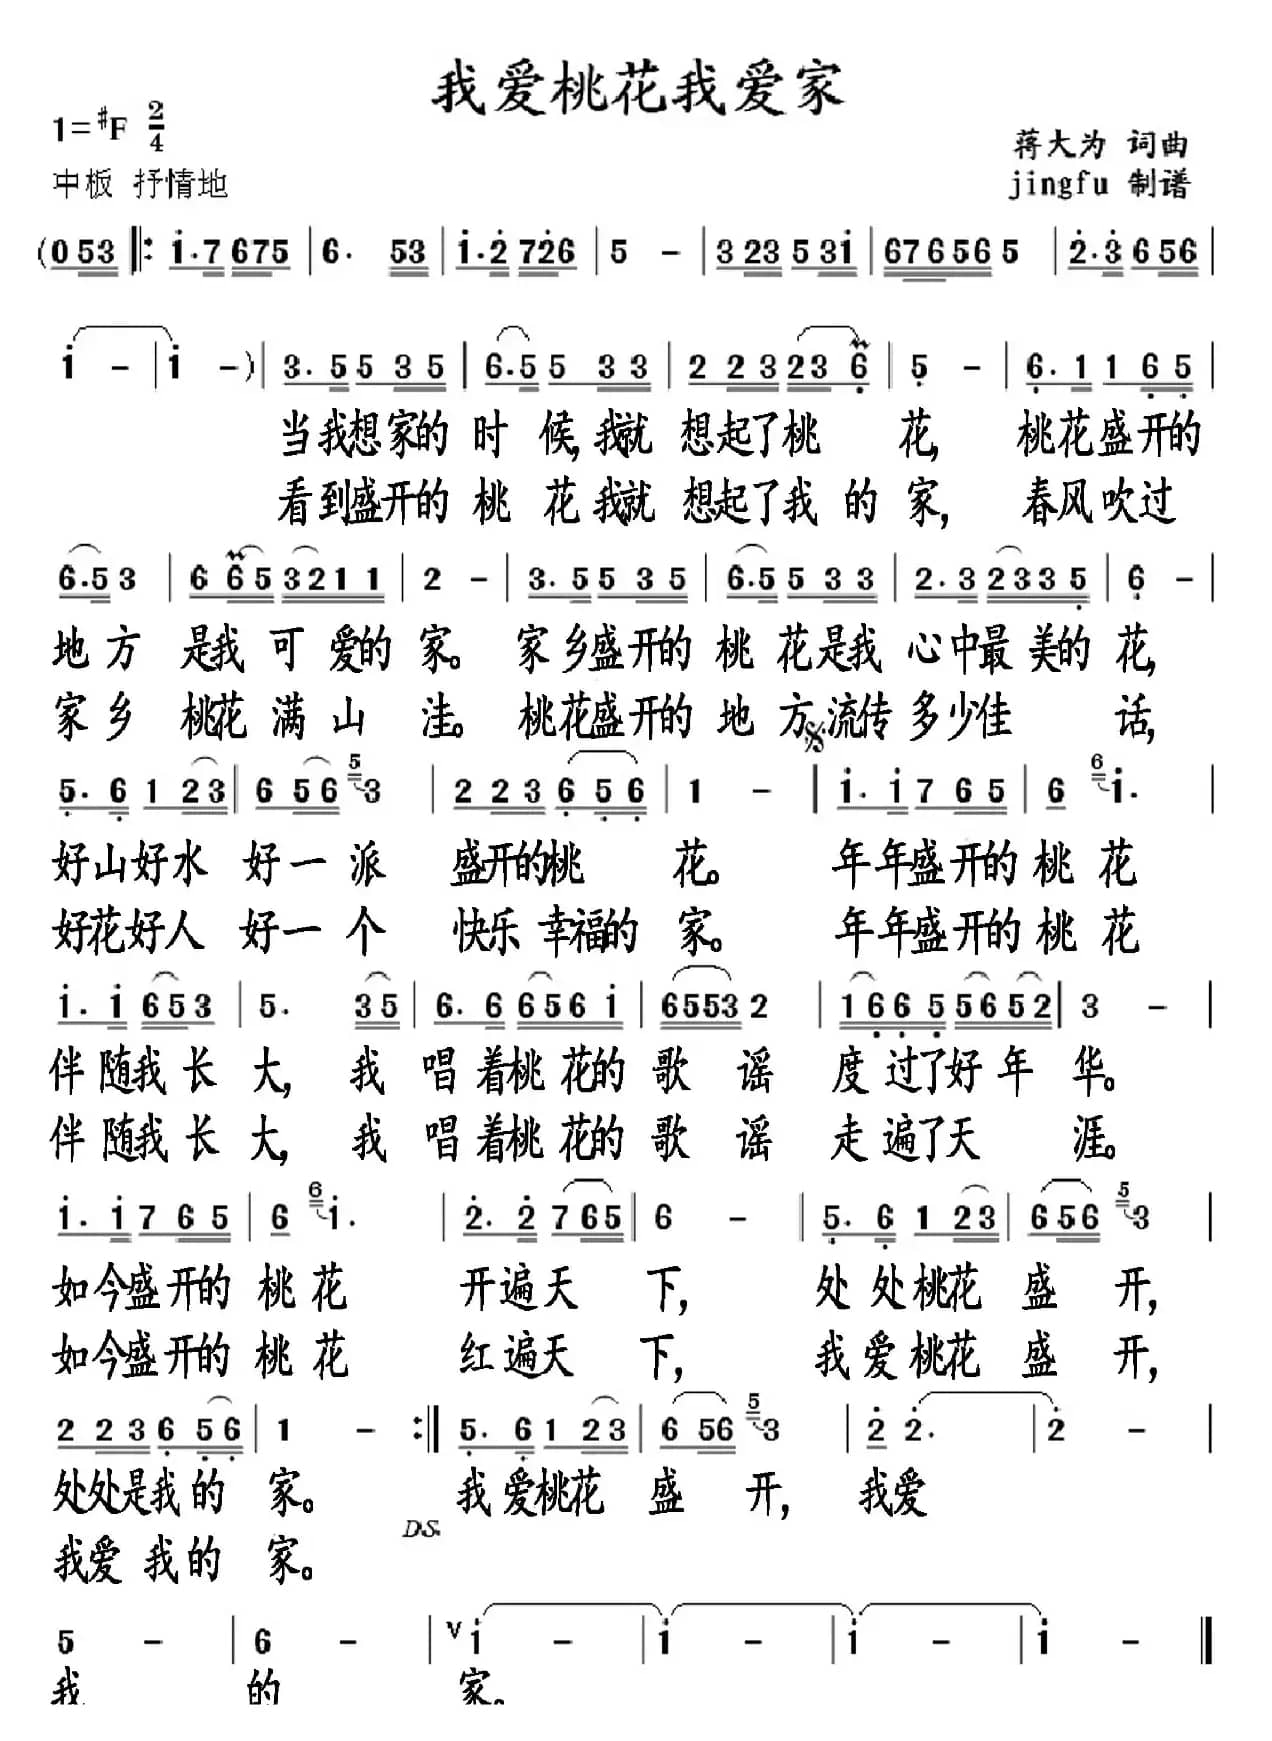 我爱桃花我爱家
1=#F 2/4
蒋大为 词曲
中板 抒情地
jingfu 制谱
(0 53 ‖: i·7 675 | 6· 53 | i·2 726 | 5 - | 3 23 5 3i | 676565 5 | 2·3 656 |
i - | i -) | 3·5 5 3 5 | 6·5 5 3 3 | 2 2 3 23 6 | 5 - | 6·1 1 6 5 |
当我想家的 时 候,我就 想起了桃 花, 桃花盛开的
看到盛开的 桃 花 我就 想起了我 的 家, 春风吹过
6·5 3 | 6 6 5 3211 | 2 - | 3·5 5 3 5 | 6·5 5 3 3 | 2·3 2335 | 6 - |
地 方 是我 可 爱的 家。 家 乡盛开的 桃 花是我 心中最 美的 花,
家 乡 桃花 满 山 洼。 桃花盛开的 地 方 流传 多少佳 话,
5·6 1 23 | 6 56 5 3 | 2 2 3 6 5 6 | 1 - | i·i 7 6 5 | 6 6 i· |
好山好水 好一派 盛开的桃 花。 年年盛开的 桃 花
好花好人 好一个 快乐 幸福的 家。 年年盛开的 桃 花
i·i 653 | 5· 35 | 6·6 656i | 6553 2 | 1665 5652 | 3 - |
伴 随我 长 大, 我 唱 着桃 花的 歌 谣 度 过了好 年 华。
伴 随我 长 大, 我 唱 着桃 花的 歌 谣 走 遍了天 涯。
i·i 7 6 5 | 6 6 i· | 2·2 765 | 6 - | 5·6 1 23 | 656 5 3 |
如今盛开的 桃 花 开遍天 下, 处 处桃花 盛 开,
如今盛开的 桃 花 红遍天 下, 我 爱桃花 盛 开,
2 2 3 6 5 6 | 1 - :‖ 5·6 1 23 | 6 56 5 3 | 2 2· | 2 - |
处处是我 的 家。 我 爱桃花 盛 开, 我爱
D.S.
我爱 我的 家。
5 - | 6 - | V i - | i - | i - | i - ‖
我 的 家。